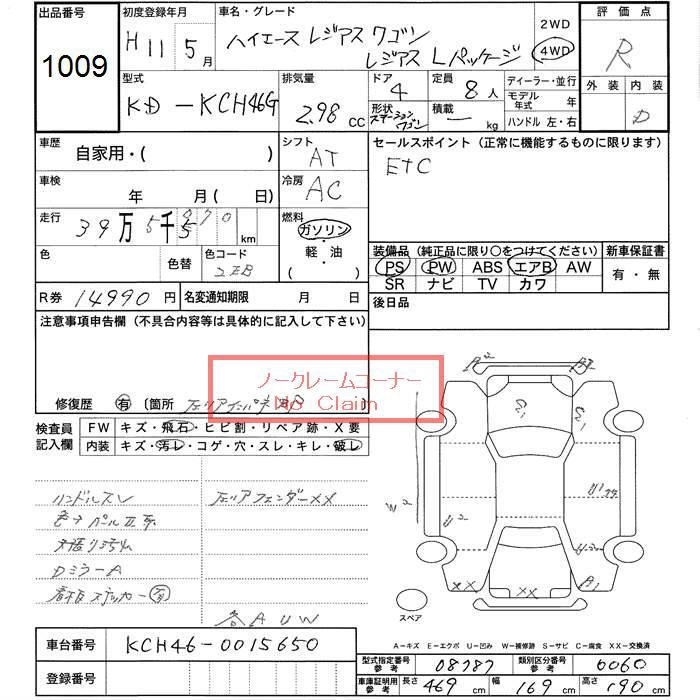 出品番号 初度登録年月 車名・グレード 2WD 評価点
1009 H11 5月 ハイエース レジアス ワゴン 4WD R
レジアス Lパッケージ
型式 排気量 ドア 定員 ディーラー・並行 外装 内装
KD-KCH46G 2.98 CC 4 8人 モデル年式 年 D
形状 ステーションワゴン 積載 — kg ハンドル 左・右
車歴 自家用・( ) シフト AT セールスポイント (正常に機能するものに限ります)
ETC
車検 年 月(日) 冷房 AC
走行 39万5千 km 燃料 ガソリン・軽油( )
色 色替 色コード
装備品 (純正品に限り○をつけてください) 新車保証書
PS PW ABS エアB AW 有・無
SR ナビ TV カワ
R券 14990円 名変通知期限 月 日 後日品
注意事項申告欄 (不具合内容等は具体的に記入して下さい)
ノークレームコーナー
No Claim
修復歴 有 〔箇所
検査員記入欄 FW キズ・飛石・ヒビ割・リペア跡・X要
内装 キズ・汚レ・コゲ・穴・スレ・キレ・破レ
ハンドルスレ 左リアフェンダーXX
DミラーA
看板ステッカー有
各AUW
スペア
A=キズ E=エクボ U=凹み W=補修跡 S=サビ C=腐食 XX=交換済
車台番号 KCH46-0015650
型式指定番号 参考 08787 類別区分番号 参考 0060
登録番号 車庫証明用 参考 長さ 469cm 幅 169cm 高さ 190cm